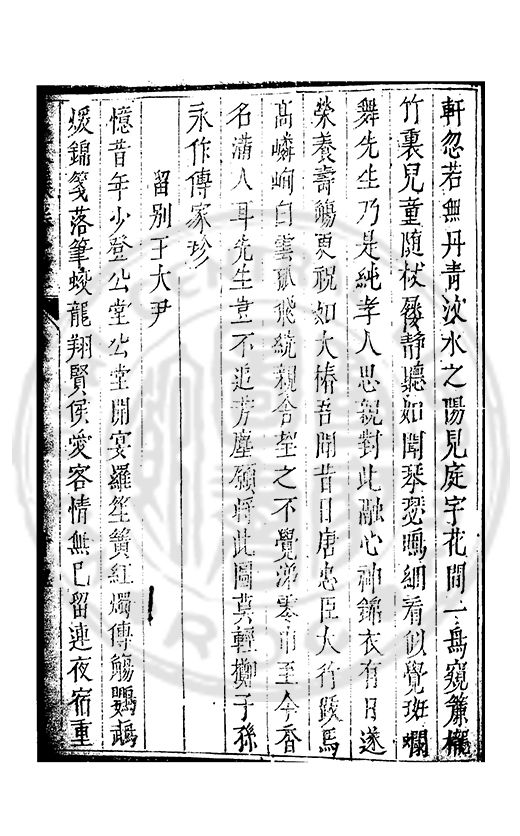 軒忽若無丹青汶水之陽見庭宇花間一鳥窺簾櫳
竹裏兒童隨杖屨靜聽如聞琴瑟鳴細看似覺斑斕
舞先生乃是純孝人思親對此融心神錦衣有日遂
榮養壽觴更祝如大椿吾聞昔日唐忠臣太行跋馬
高嶙峋白雲孤飛繞親舍望之不覺涕零雨至今香
名滿人耳先生豈不追芳塵願將此圖莫輕擲子孫
永作傳家珍
留別王大尹
憶昔年少登公堂公堂開宴羅笙簧紅燭傳觴鸚鵡
煖錦箋落筆蛟龍翔賢侯愛客情無已留連夜宿重